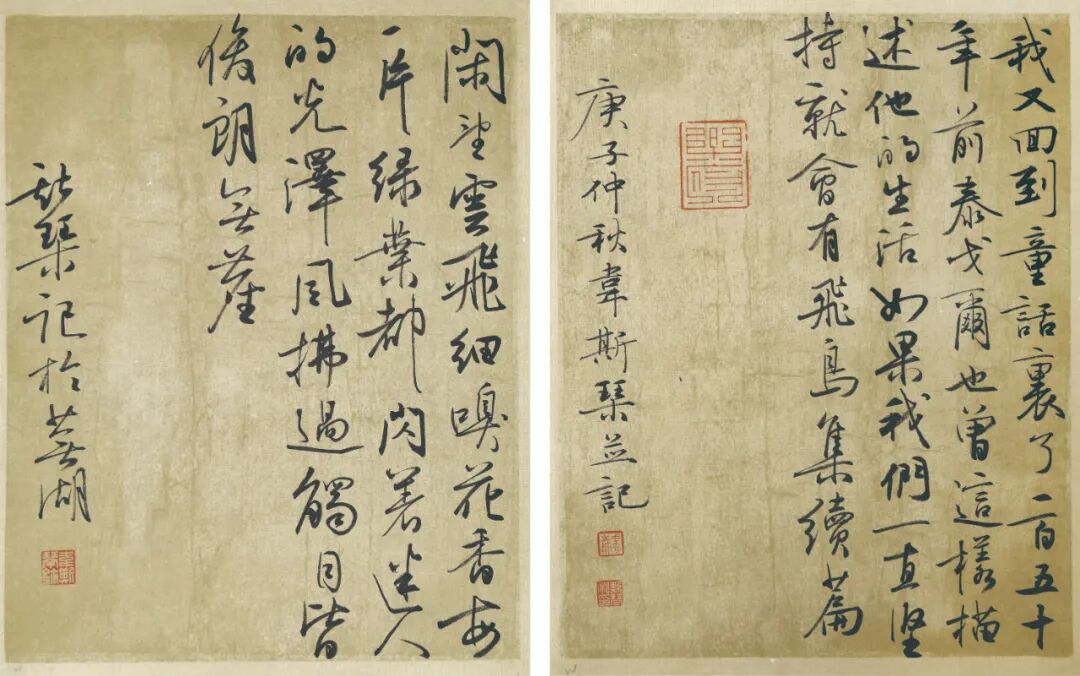 我又回到童話裏了一百五十
年前泰戈爾也曾這樣描
述他的生活如果我們一直坚
持就會有飛鳥集續篇
庚子仲秋韋斯琴並記
閑望雲飛細嗅花香每
一片綠葉都閃著迷人
的光澤風拂過觸目皆
俊朗無
斯琴记於蕪湖